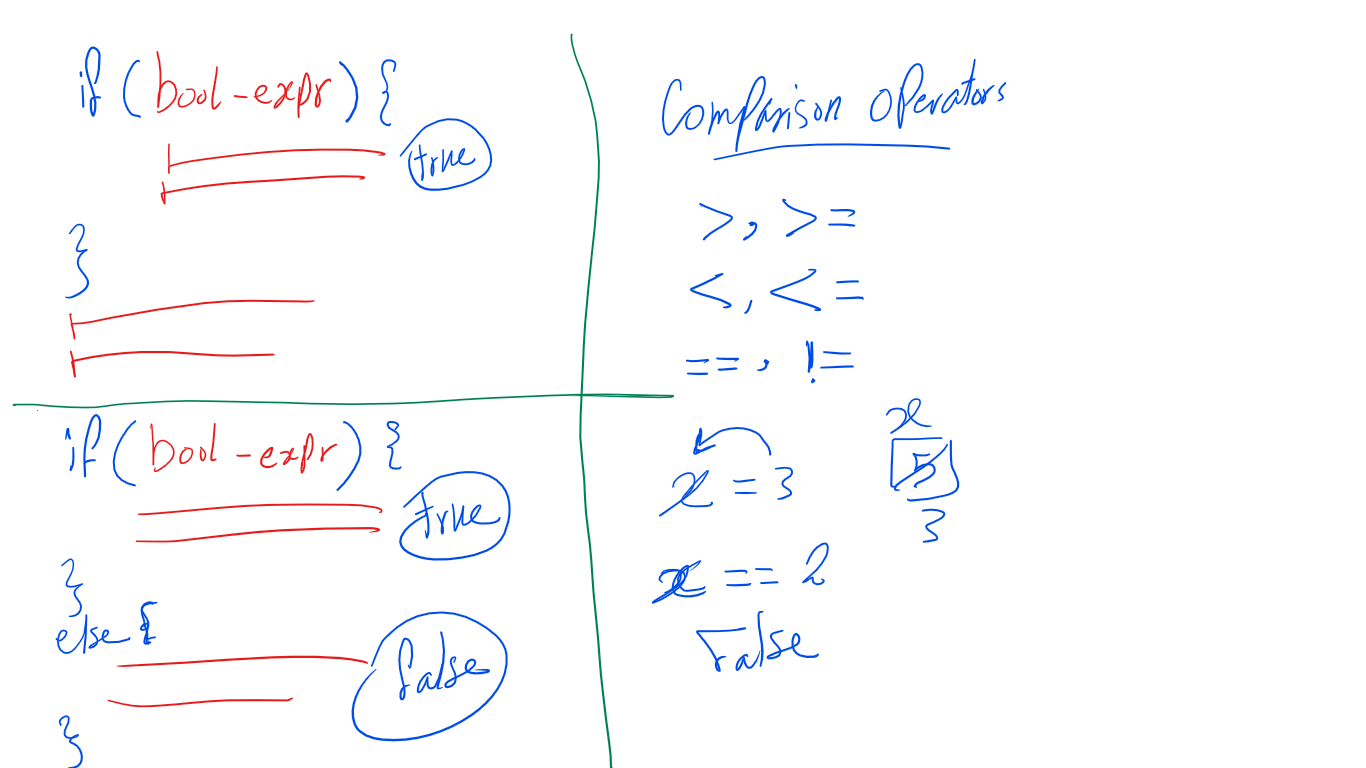 if (bool-expr) {
true
}
if (bool-expr) {
true
}
else {
false
}
Comparison operators
>, >=
<, <=
==, !=
x
x = 3
5
3
x == 2
False